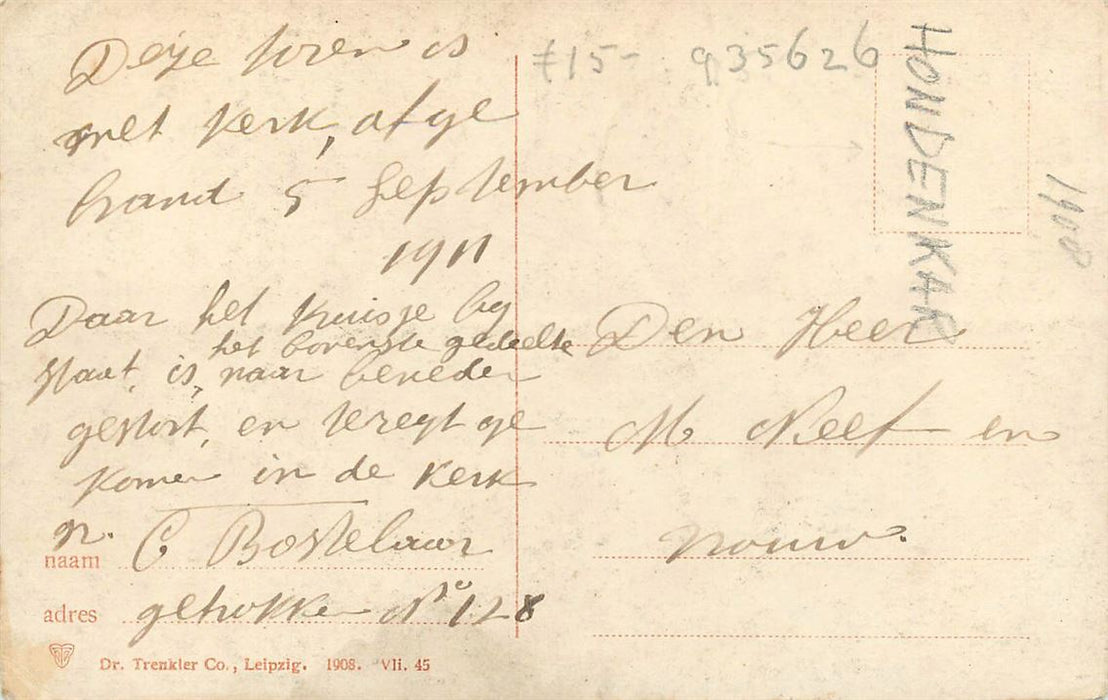 Deze toren is
met kerk, afge
brand 5 September
1911
Daar het kruisje by
het bovenste gedeelte
staat, is, naar beneden
gestort, en teregt ge
komen in de kerk
n.
naam C Bostelaar
adres getrokken No 128
Dr. Trenkler Co., Leipzig. 1908. VII. 45
£15- 935626
HONDENKAR
1908
Den Heer
M Neef en
vrouw.